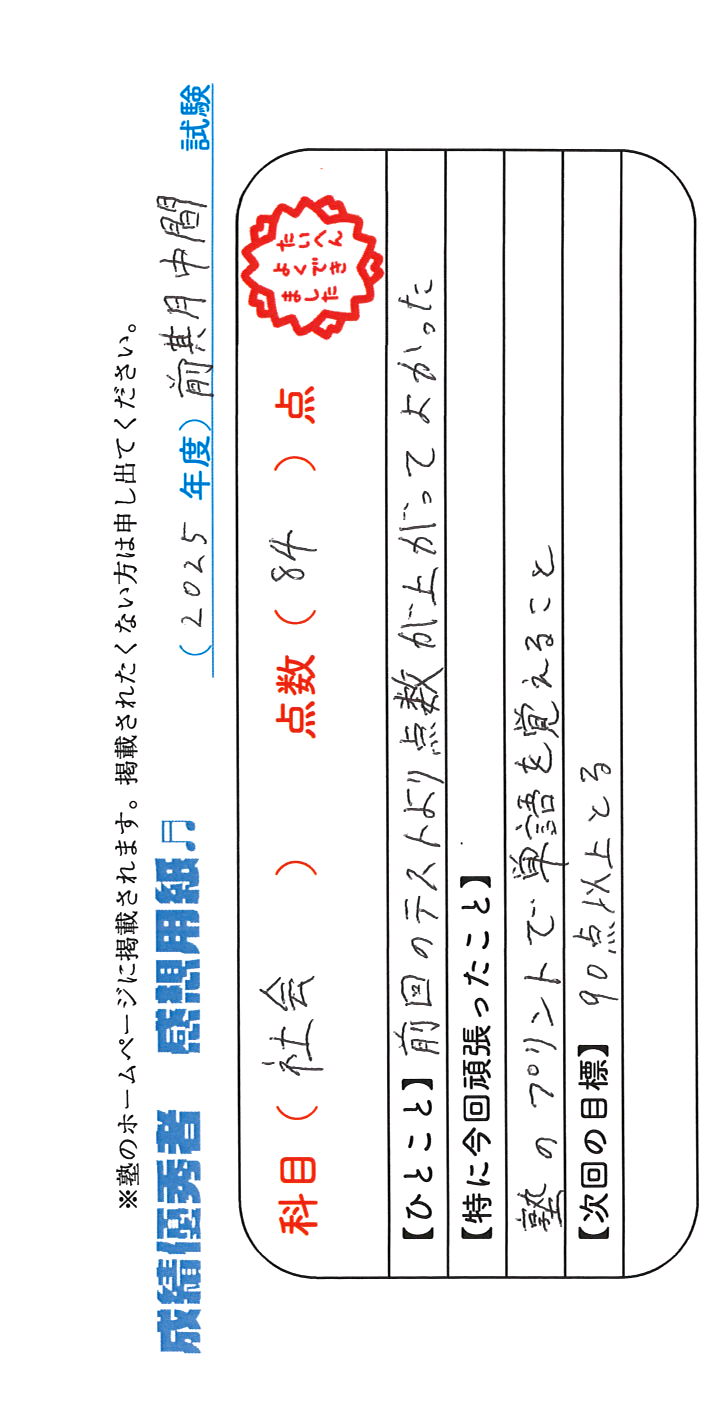 ※塾のホームページに掲載されます。掲載されたくない方は申し出てください。
成績優秀者 感想用紙♬ (2025 年度) 前期月中間 試験
科目 ( 社会 ) 点数 ( 84 ) 点
たいへん
よくでき
ました
【ひとこと】前回のテストより点数が上がってよかった
【特に今回頑張ったこと】
塾のプリントで単語を覚えること
【次回の目標】 90点以上とる